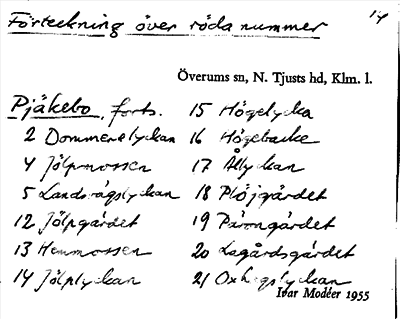 Förteckning över röda nummer
14
Överums sn, N. Tjusts hd, Klm. l.
Pjäkebo, forts.
2 Dommerelyckan
4 Jölpmossen
5 Landsvägslyckan
12 Jölpgärdet
13 Hemmossen
14 Jölplyckan
15 Högelycka
16 Högebacke
17 Ållyckan
18 Plöjgärdet
19 Pärongärdet
20 Lagårdsgärdet
21 Oxhagslyckan
Ivar Modéer 1955